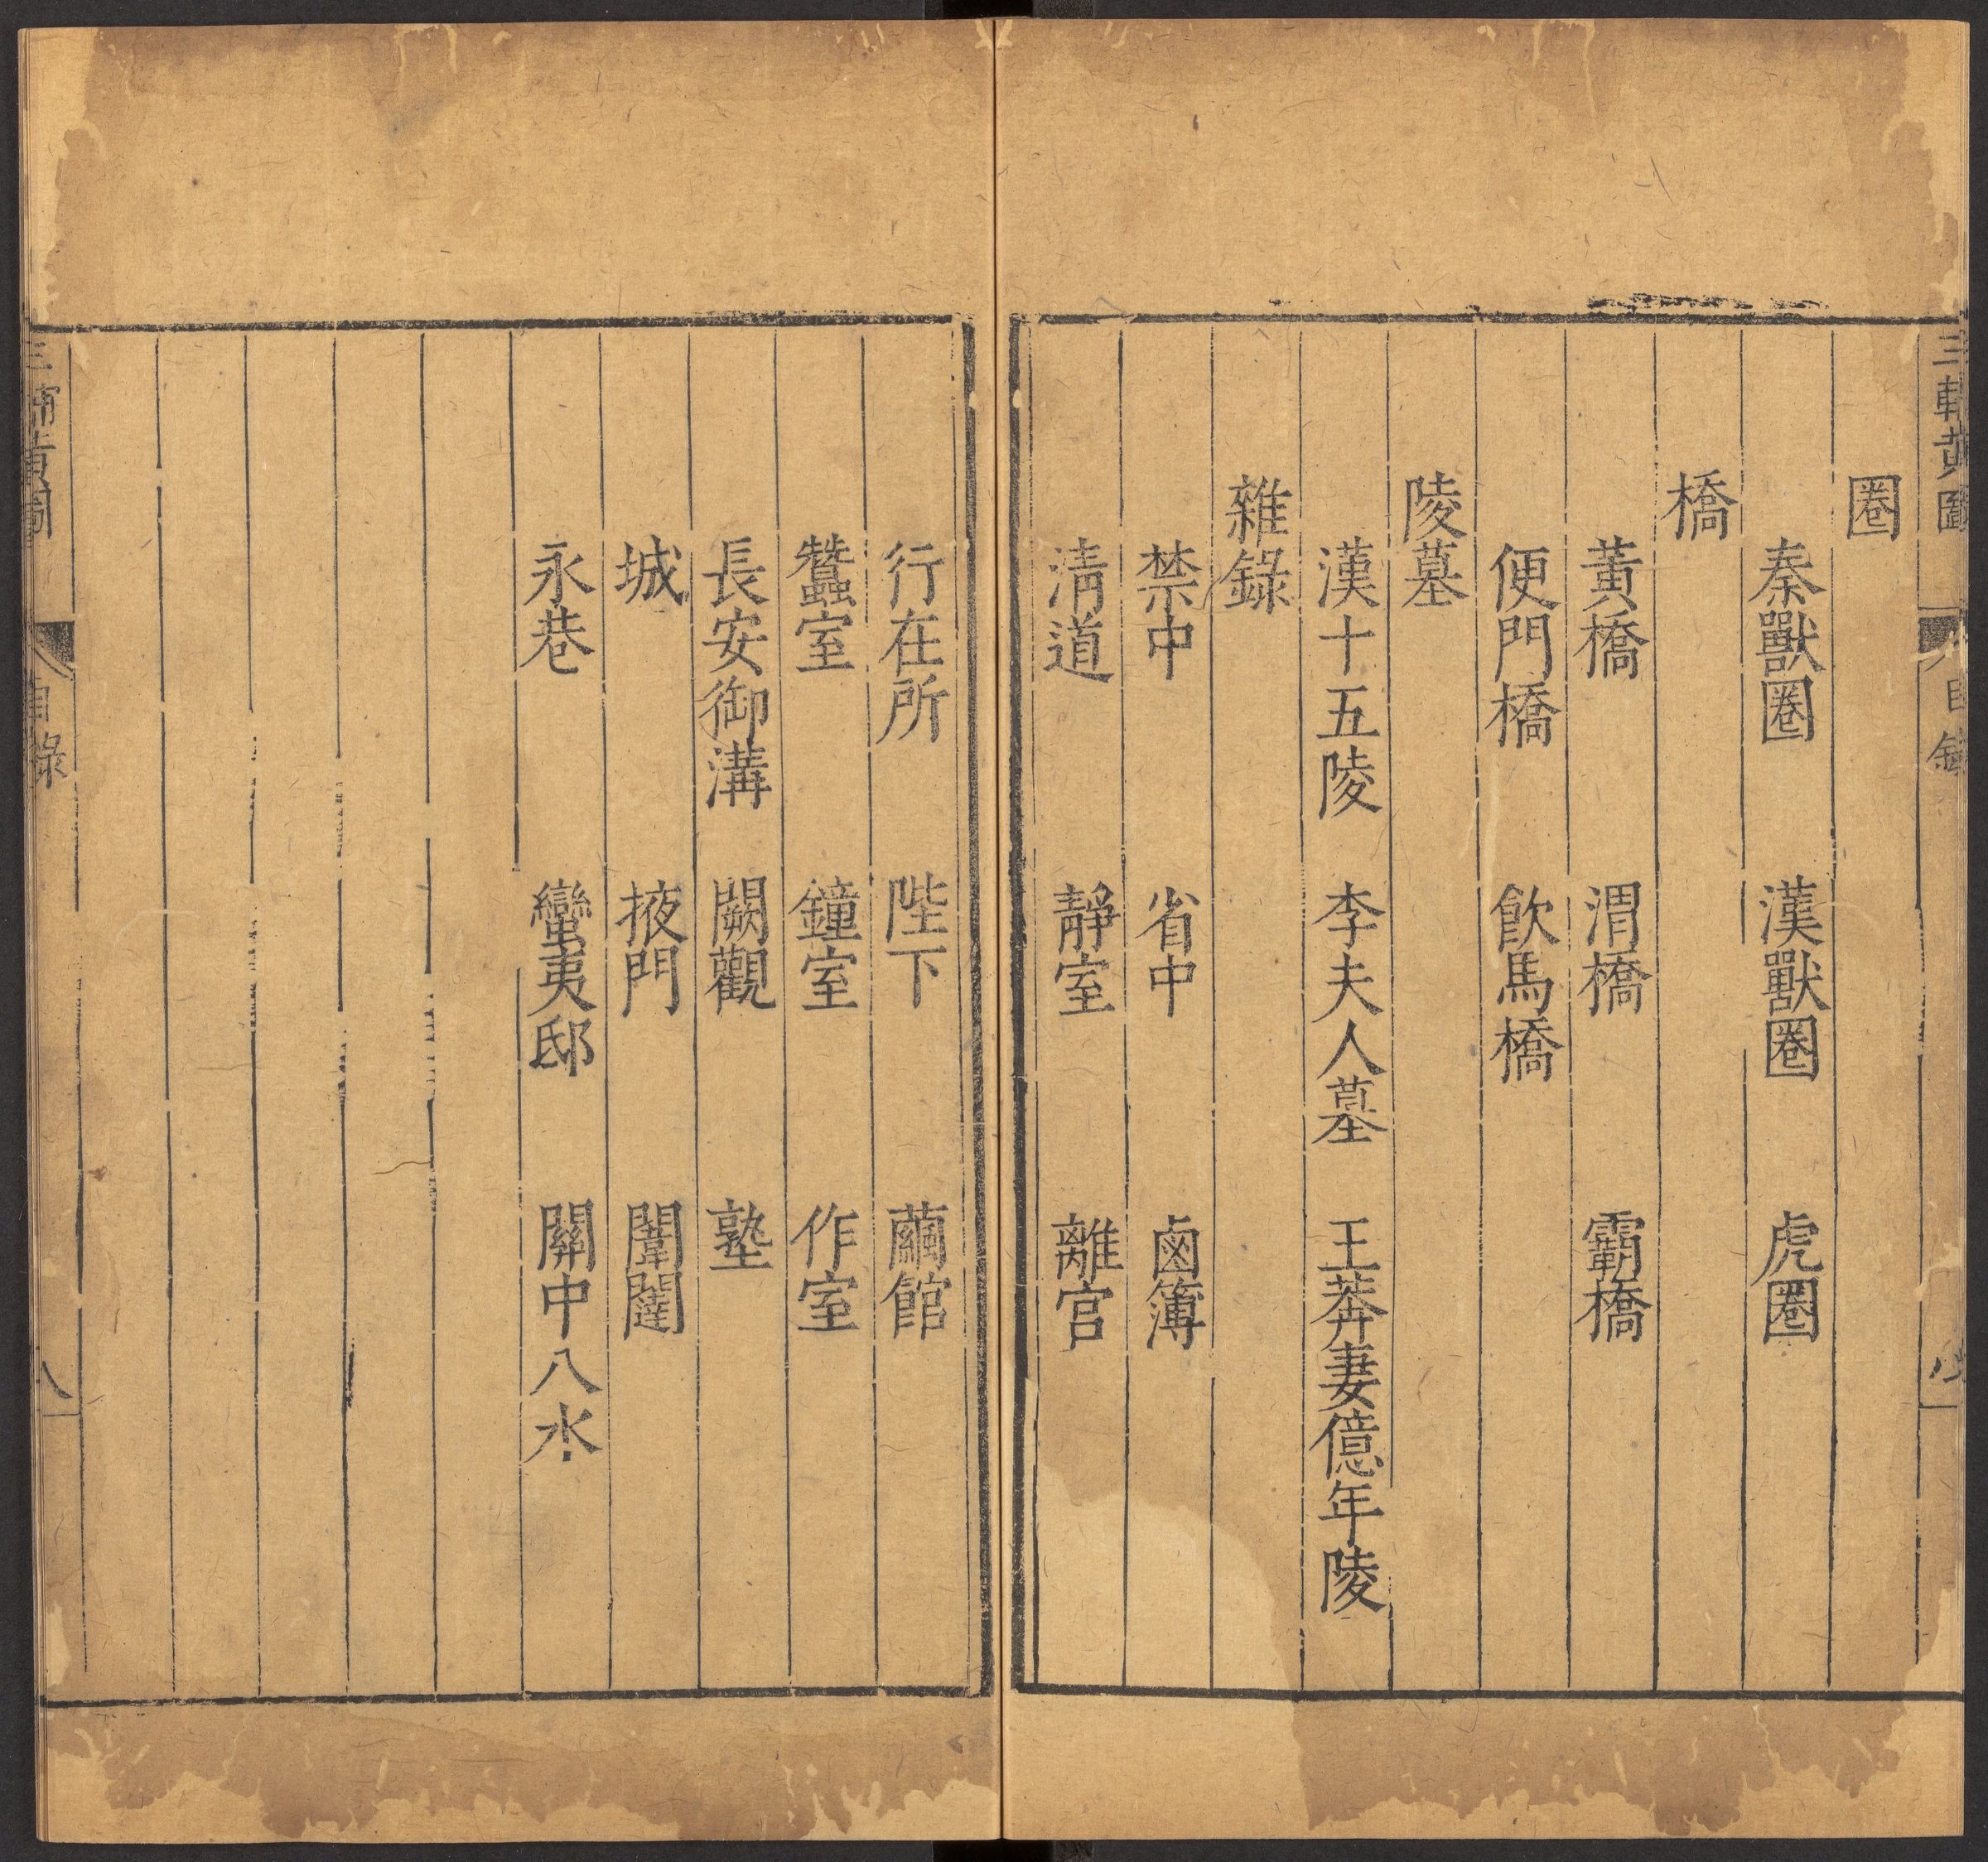 三輔黃圖 目錄
圈
秦獸圈 漢獸圈 虎圈
橋
黃橋 渭橋 霸橋
便門橋 飲馬橋
陵墓
漢十五陵 李夫人墓 王莽妻億年陵
雜錄
禁中 省中 鹵簿
淸道 靜室 離宫
行在所 陛下 繭館
蠶室 鐘室 作室
長安御溝 闕觀 塾
城 掖門 闈闥
永巷 蠻夷邸 關中八水
三輔黃圖 目錄 八